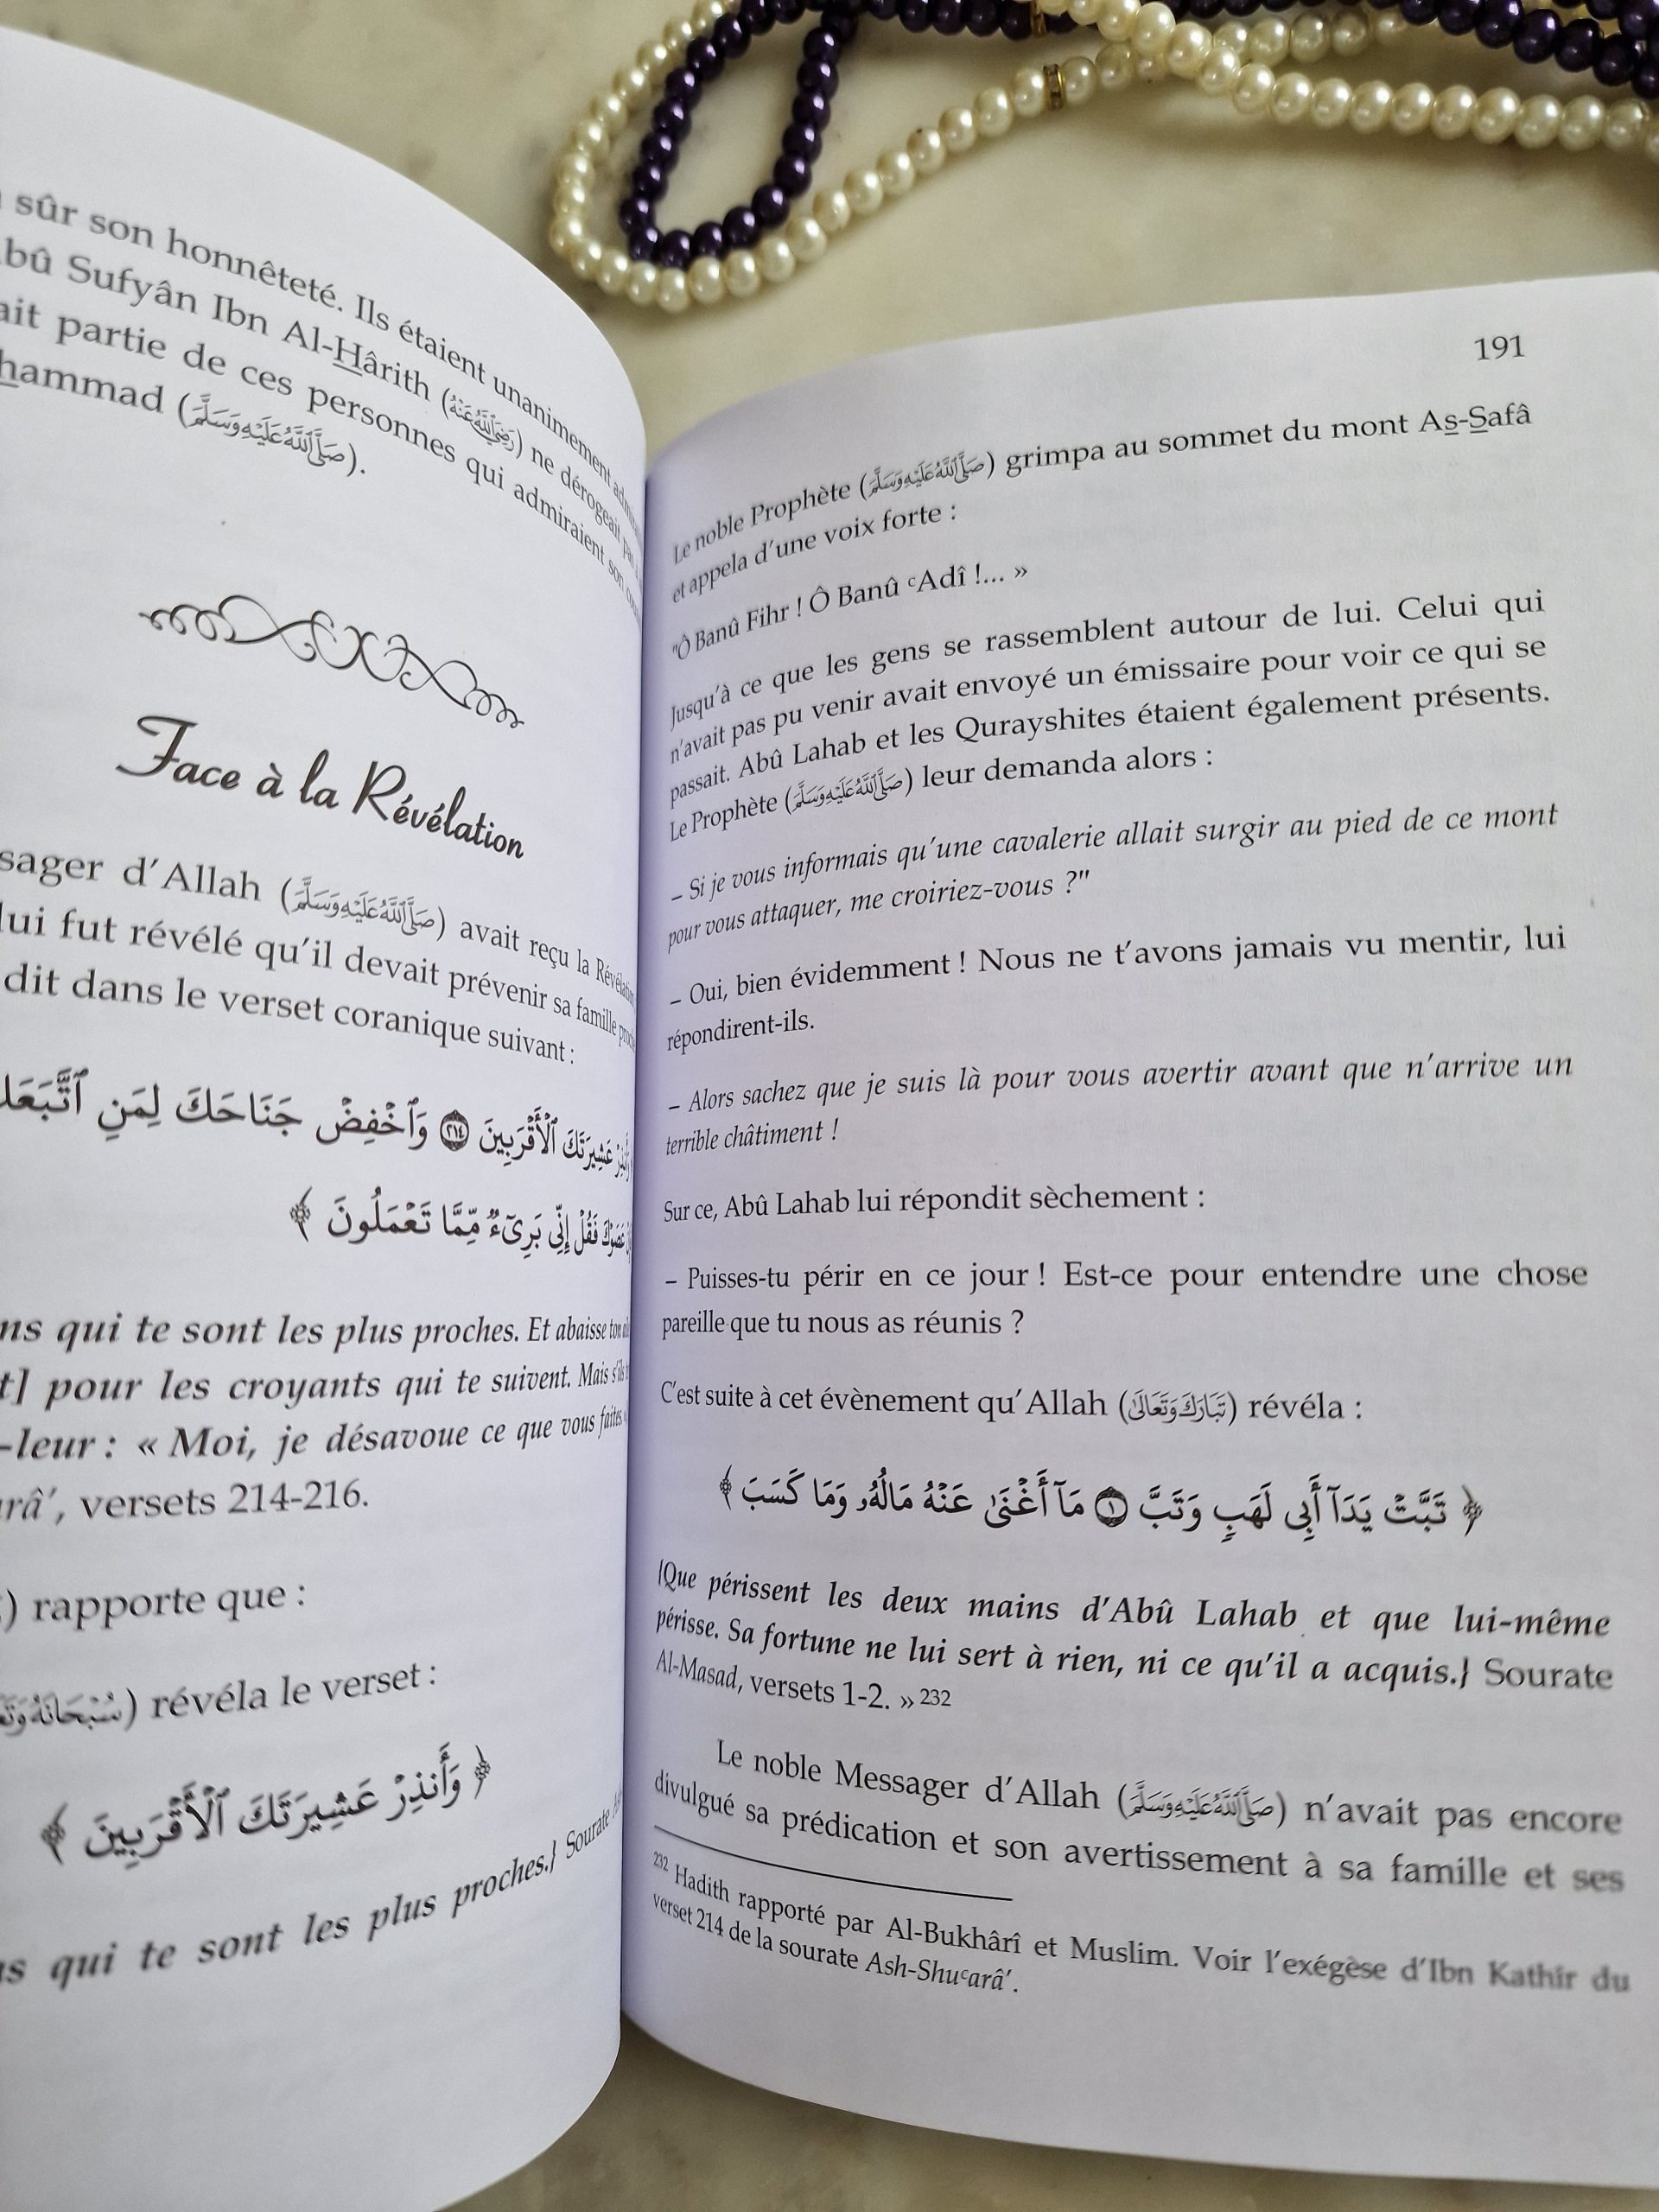 sûr son honnêteté. Ils étaient unanimement
Sufyân Ibn Al-Hârith (رَضِيَ اللَّهُ عَنْهُ) ne dérogeait
partie de ces personnes qui admiraient son
(صَلَّى اللَّهُ عَلَيْهِ وَسَلَّمَ).
Face à la Révélation
d'Allah (صَلَّى اللَّهُ عَلَيْهِ وَسَلَّمَ) avait reçu la
lui fut révélé qu'il devait prévenir sa famille
dit dans le verset coranique suivant :
عَشِيرَتَكَ ٱلْأَقْرَبِينَ ٢١٤ وَٱخْفِضْ جَنَاحَكَ لِمَنِ
فَقُلْ إِنِّى بَرِىٓءٌ مِّمَّا تَعْمَلُونَ ﴾
qui te sont les plus proches. Et abaisse ton
pour les croyants qui te suivent. Mais
-leur : « Moi, je désavoue ce que vous faites
versets 214-216.
) rapporte que :
) révéla le verset :
﴿ وَأَنذِرْ عَشِيرَتَكَ ٱلْأَقْرَبِينَ ﴾
qui te sont les plus proches.} Sourate
191
Le noble Prophète (صَلَّى اللَّهُ عَلَيْهِ وَسَلَّمَ) grimpa au sommet du mont As-Safâ
et appela d'une voix forte :
"Ô Banû Fihr ! Ô Banû ᶜAdî !... »
Jusqu'à ce que les gens se rassemblent autour de lui. Celui qui
n'avait pas pu venir avait envoyé un émissaire pour voir ce qui se
passait. Abû Lahab et les Qurayshites étaient également présents.
Le Prophète (صَلَّى اللَّهُ عَلَيْهِ وَسَلَّمَ) leur demanda alors :
– Si je vous informais qu'une cavalerie allait surgir au pied de ce mont
pour vous attaquer, me croiriez-vous ?"
– Oui, bien évidemment ! Nous ne t'avons jamais vu mentir, lui
répondirent-ils.
– Alors sachez que je suis là pour vous avertir avant que n'arrive un
terrible châtiment !
Sur ce, Abû Lahab lui répondit sèchement :
– Puisses-tu périr en ce jour ! Est-ce pour entendre une chose
pareille que tu nous as réunis ?
C'est suite à cet évènement qu'Allah (تَبَارَكَ وَتَعَالَىٰ) révéla :
﴿ تَبَّتْ يَدَآ أَبِى لَهَبٍ وَتَبَّ ١ مَآ أَغْنَىٰ عَنْهُ مَالُهُۥ وَمَا كَسَبَ ﴾
{Que périssent les deux mains d'Abû Lahab et que lui-même
périsse. Sa fortune ne lui sert à rien, ni ce qu'il a acquis.} Sourate
Al-Masad, versets 1-2. » 232
Le noble Messager d'Allah (صَلَّى اللَّهُ عَلَيْهِ وَسَلَّمَ) n'avait pas encore
divulgué sa prédication et son avertissement à sa famille et ses
232 Hadith rapporté par Al-Bukhârî et Muslim. Voir l'exégèse d'Ibn Kathîr du
verset 214 de la sourate Ash-Shuᶜarâ'.